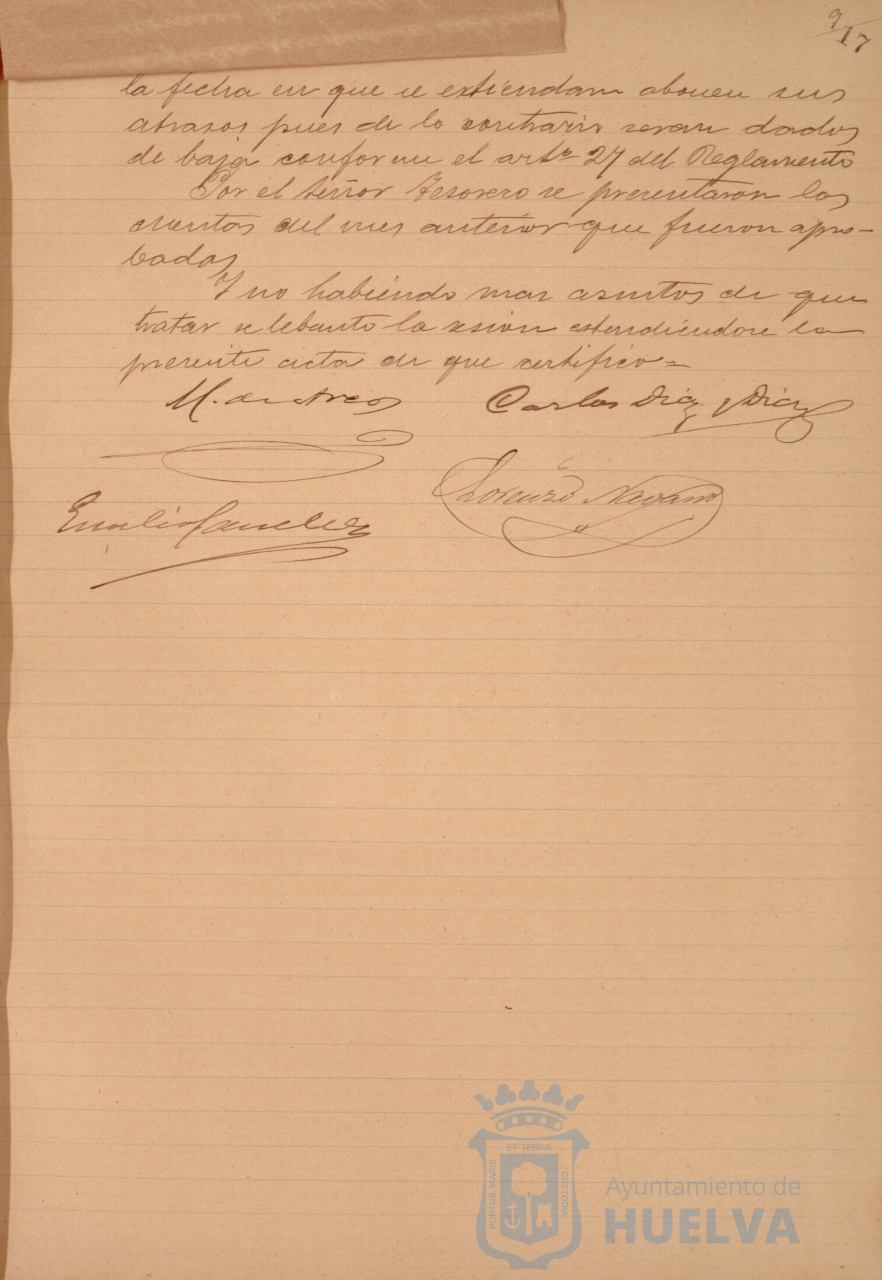 9
17
la fecha en que se extiendam abonen sus
atrasos pues de lo contrario seran dados
de baja conforme el artº 27 del Reglamento
Por el Señor Tesorero se presentaron las
cuentas del mes anterior que fueron apro-
badas
Y no habiendo mas asuntos de que
tratar se lebanto la sesion estendiendose la
presente acta de que certifico=
M. de Arcos
Carlos Diaz y Diaz
Lorenzo Navarro
Emilio Sanchez
ET TERRÆ
PORTUS MARIS
CUSTODIA
Ayuntamiento de
HUELVA